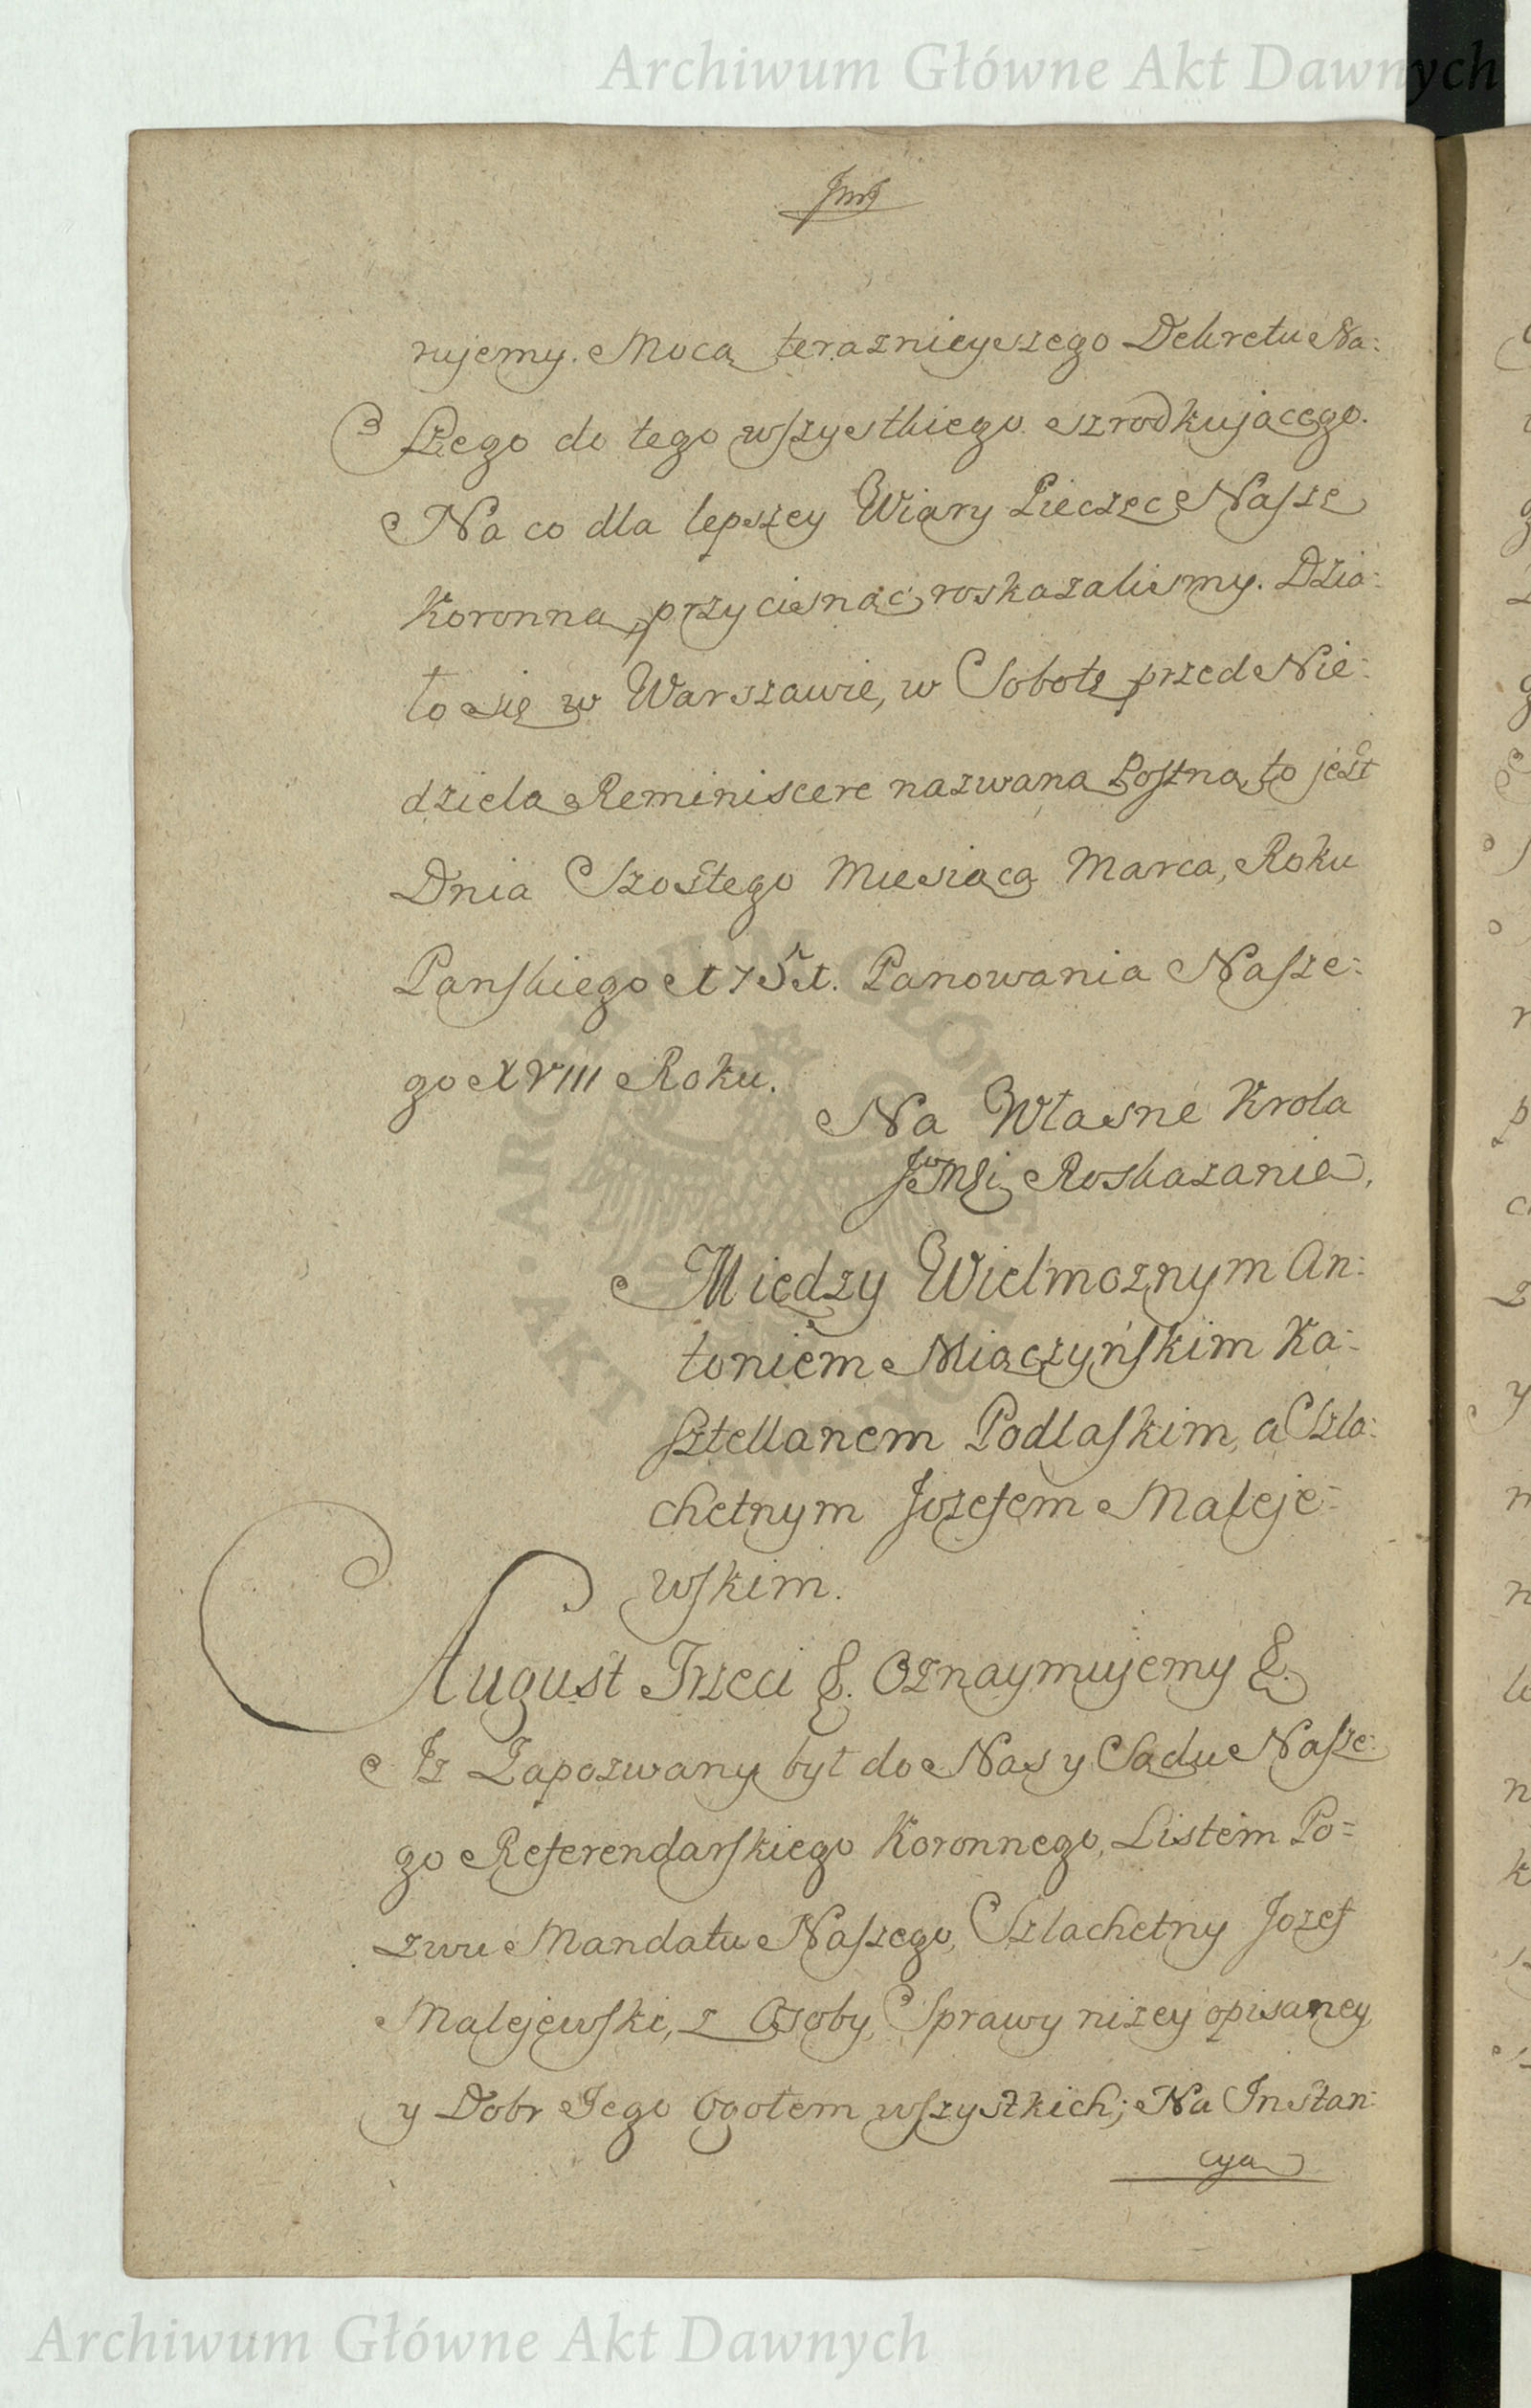 Archiwum Główne Akt Dawnych
rujemy. Mocą teraznieyszego Dekretu Na:
szego do tego wszystkiego szrodkującego.
Na co dla lepszey Wiary Pieczęć Naszę
Koronną przycisnąć roskazalismy. Dzia:
ło się w Warszawie, w Sobotę przed Nie:
dzielą Reminiscere nazwaną Postną, to jest
Dnia Szostego Miesiąca Marca, Roku
Panskiego 1751. Panowania Nasze:
go XVIII Roku.
Na Własne Krola
JeoMSi Roskazanie,
Między Wielmoznym An:
toniem Miączyńskim Ka:
sztellanem Podlaskim, a Szla:
chetnym Jozefem Maleje:
wskim.
August Trzeci &. Oznaymujemy &.
Iz Zapozwany był do Nas y Sądu Nasze:
go Referendarskiego Koronnego, Listem Po=
zwu Mandatu Naszego, Szlachetny Jozef
Malejewski, z Osoby, Sprawy nizey opisaney
y Dobr Jego Ogołem wszystkich; Na Instan:
cyą
Archiwum Główne Akt Dawnych